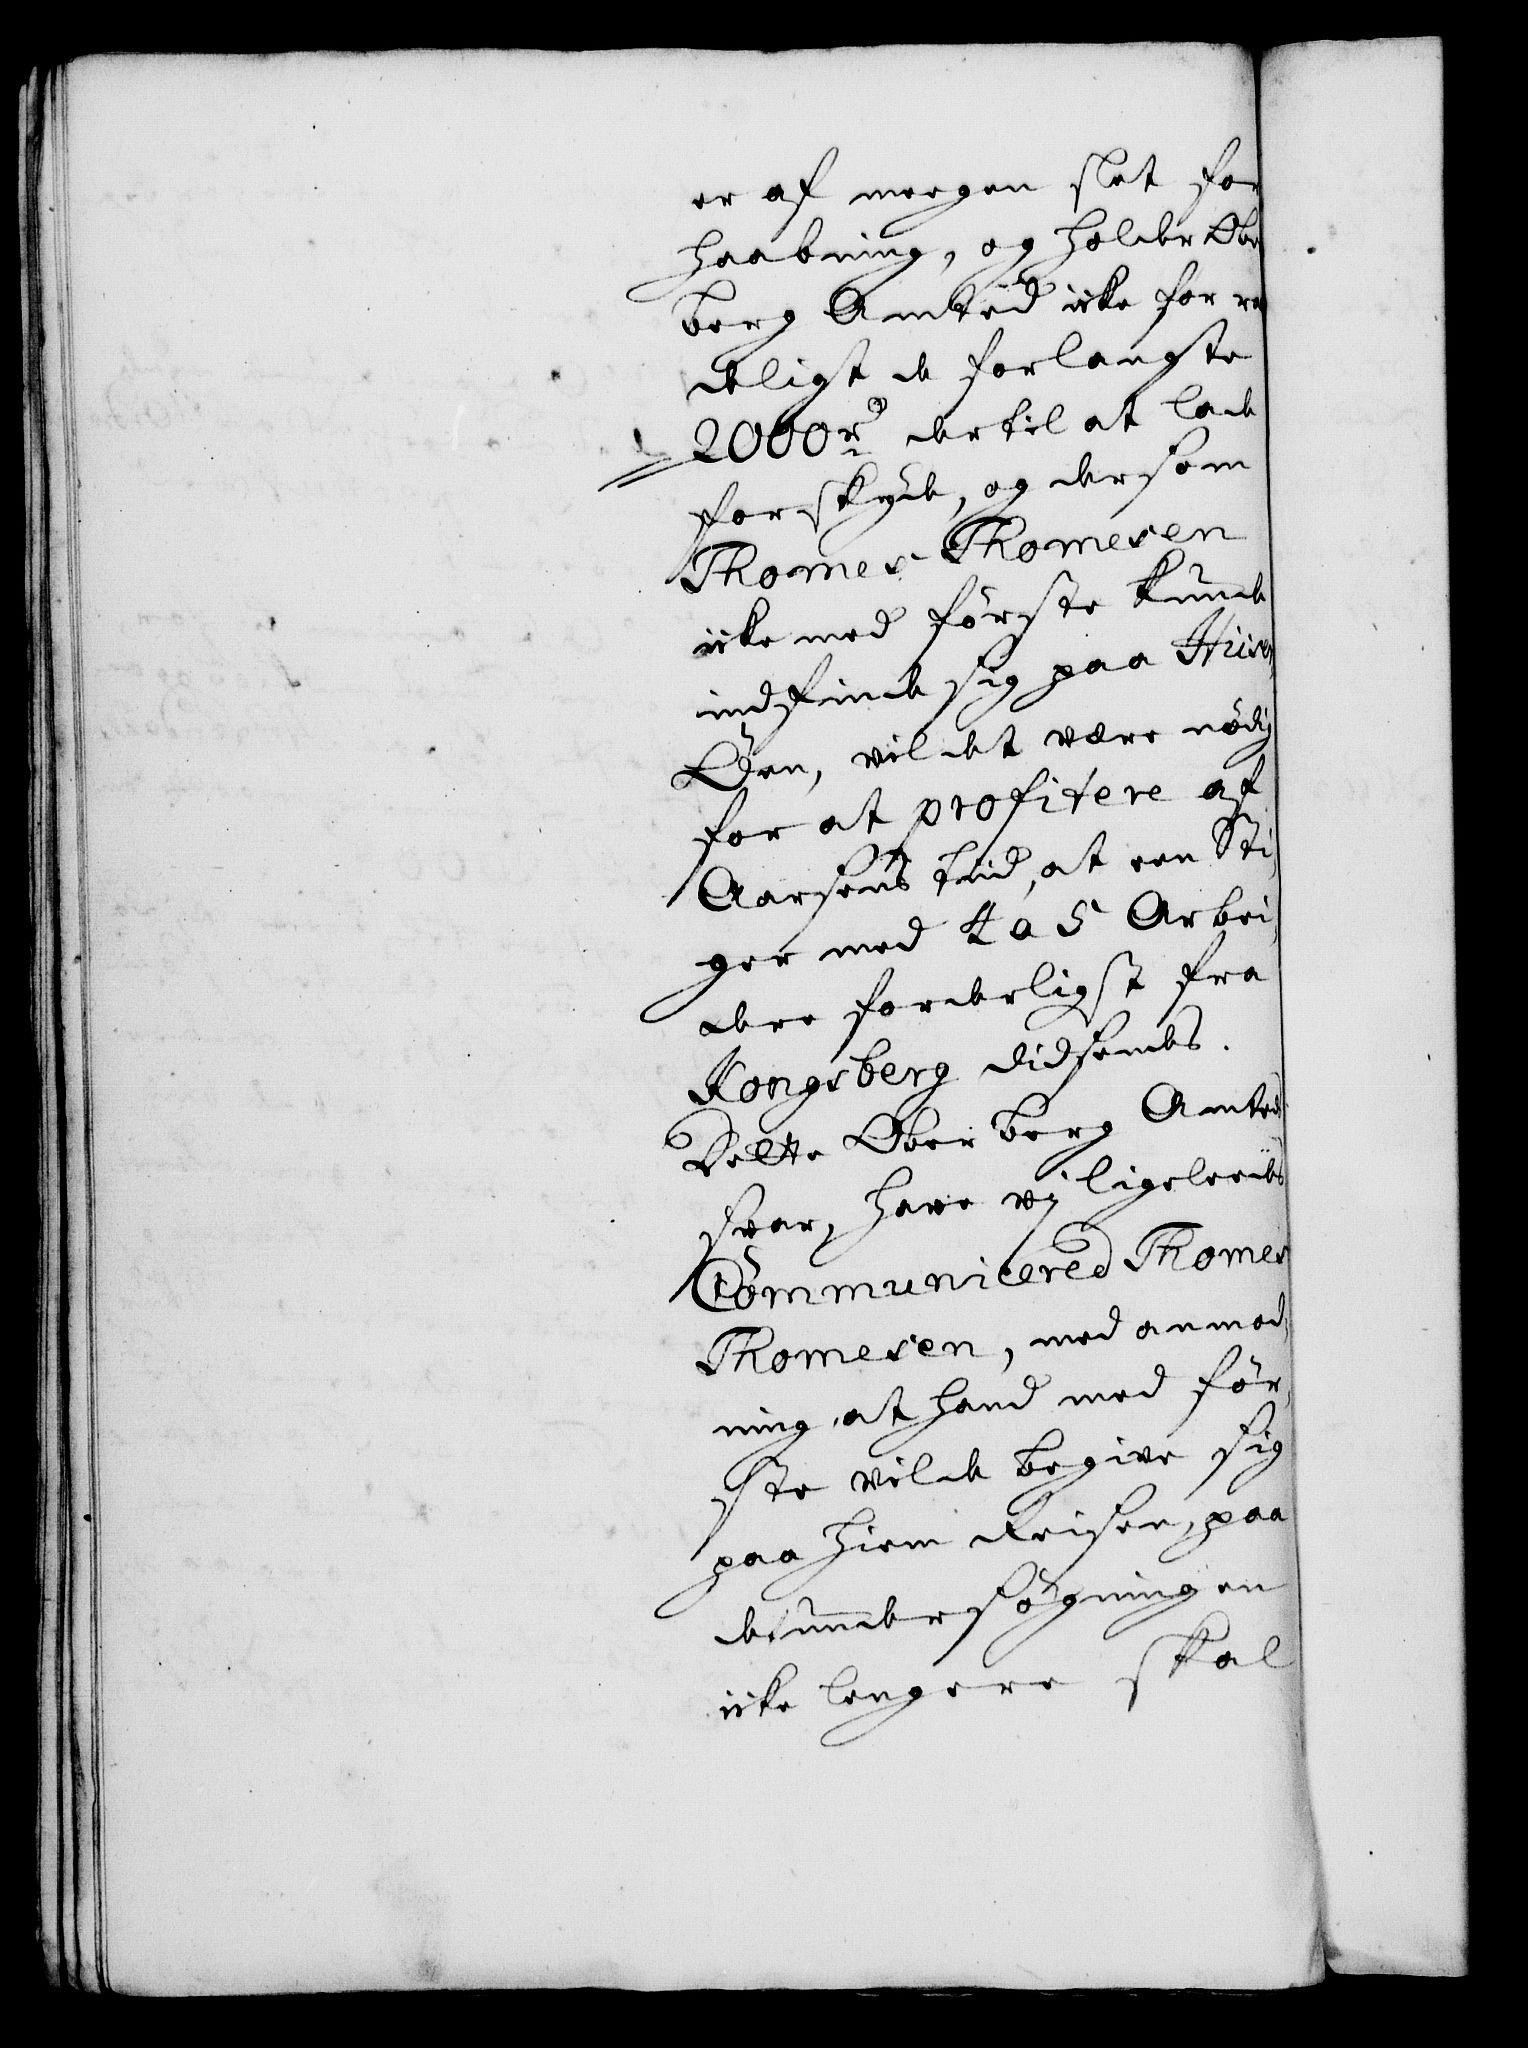 er af meegen slet for
haabning, og holder Ober
berg Amted icke for raa
deligt de forlangte
2000 rd dertil at lade
forskyde, og dersom
Thomes Thomesen
icke med første kunde
indfinde sig paa
Øen, vil det være nødig
for at profitere af
Aarsens tiid, at een Sti,
ger med 4 a 5 Arbei,
dere forderligst fra
Kongsberg didsendes.
Dette Ober berg Amtes
svar, have vj ligeleedes
Communicered Thomes
Thomesen, med anmod,
ning, at hand med før,
ste vilde begive sig
paa hiem Reisen, paa
det undersøgningen
icke lengere skal